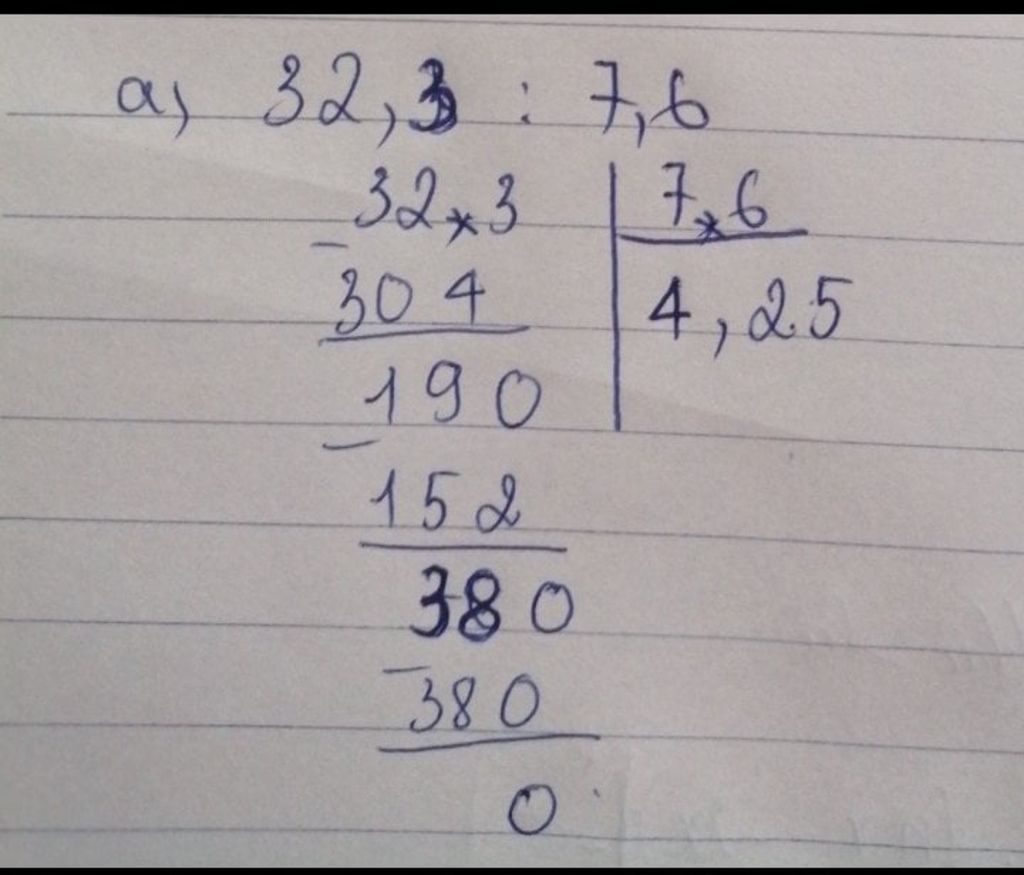 a, 32,3 : 7,6
32,3 | 7,6
- 304 | 4,25
190
- 152
380
- 380
0